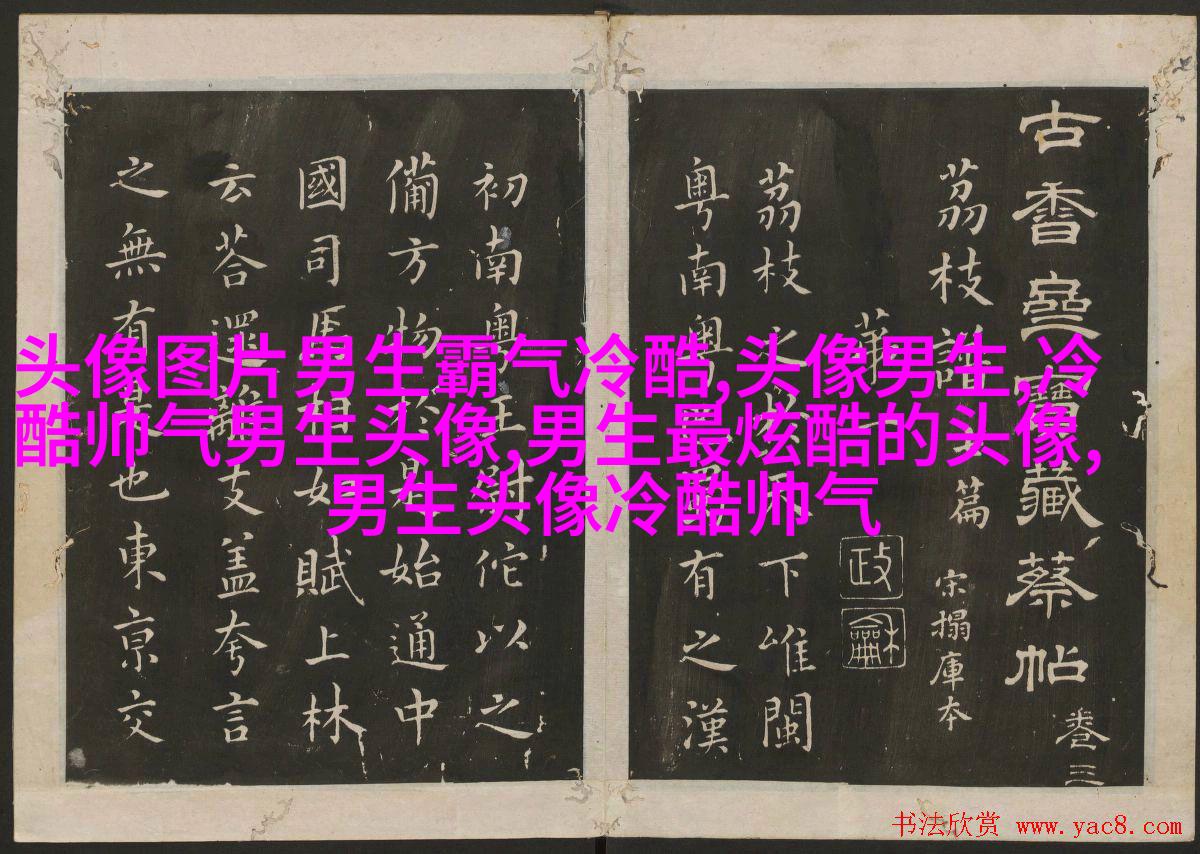 古香齋寶藏蔡帖 卷三
荔枝譜 篇 宋搨庫本
第一
政龢
荔枝之於天下唯閩
粤南粤巴蜀有之漢
初南粤王尉佗以之
備方物於是始通中
國司馬相如賦上林
云荅遝離支盖夸言
之無有是也東京交
头像图片男生霸气冷酷,头像男生,冷
酷帅气男生头像,男生最炫酷的头像,
男生头像冷酷帅气
书法欣赏 www.yac8.com